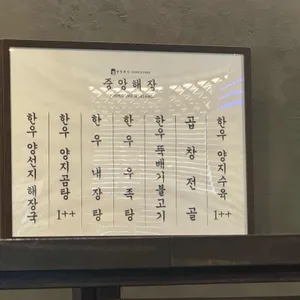 중앙해장
한우 양선지 해장국
한우 양지곰탕 1++
한우 내장탕
한우 우족탕
한우 뚝배기불고기
곱창전골
한우 양지수육 1++